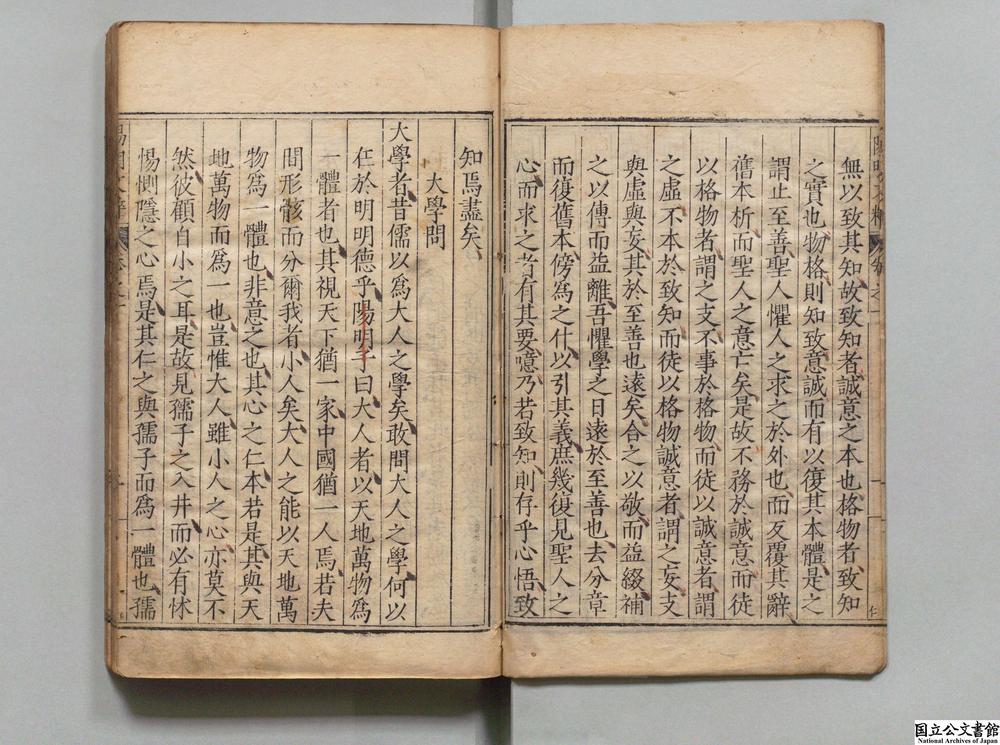 無以致其知故致知者誠意之本也格物者致知
之實也物格則知致意誠而有以復其本體是之
謂止至善聖人懼人之求之於外也而反覆其辭
舊本析而聖人之意亡矣是故不務於誠意而徒
以格物者謂之支不事於格物而徒以誠意者謂
之虛不本於致知而徒以格物誠意者謂之妄支
與虛與妄其於至善也遠矣合之以敬而益綴補
之以傳而益離吾懼學之日遠於至善也去分章
而復舊本傍爲之什以引其義庶幾復見聖人之
心而求之者有其要噫乃若致知則存乎心悟致
知焉盡矣
大學問
大學者昔儒以爲大人之學矣敢問大人之學何以
在於明明德乎陽明子曰大人者以天地萬物爲
一體者也其視天下猶一家中國猶一人焉若夫
間形骸而分爾我者小人矣大人之能以天地萬
物爲一體也非意之也其心之仁本若是其與天
地萬物而爲一也豈惟大人雖小人之心亦莫不
然彼顧自小之耳是故見孺子之入井而必有怵
惕惻隱之心焉是其仁之與孺子而爲一體也孺
国立公文書館
National Archives of Japan